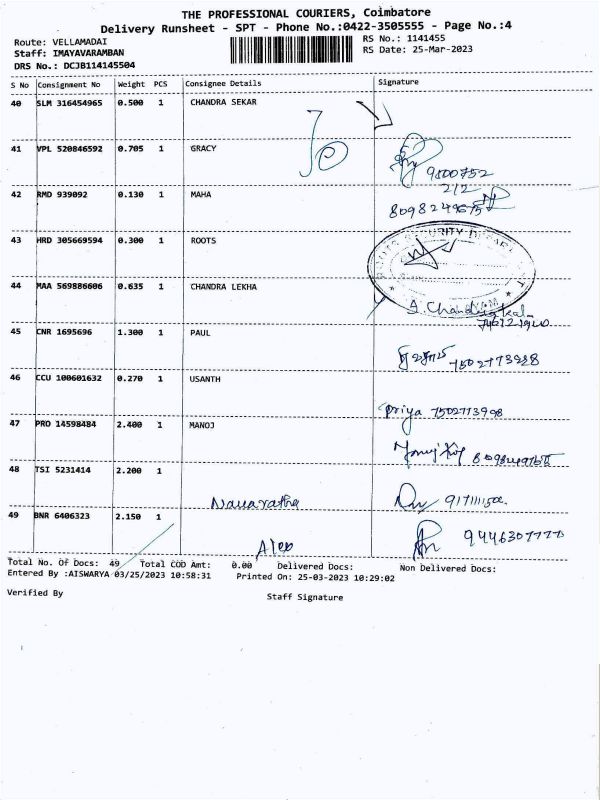 THE PROFESSIONAL COURIERS, Coimbatore
Delivery Runsheet - SPT - Phone No.:0422-3505555 - Page No.:4
Route: VELLAMADAI
RS No.: 1141455
Staff: IMAYAVARAMBAN
RS Date: 25-Mar-2023
DRS No.: DCJB114145504
S No Consignment No Weight PCS Consignee Details Signature
40 SLM 316454965 0.500 1 CHANDRA SEKAR
41 VPL 520846592 0.705 1 GRACY
9800752
212
42 RMD 939092 0.130 1 MAHA
43 HRD 305669594 0.300 1 ROOTS
SECURITY
44 MAA 569886606 0.635 1 CHANDRA LEKHA
45 CNR 1695696 1.300 1 PAUL
7502773988
46 CCU 100601632 0.270 1 USANTH
Priya 7502773998
47 PRO 14598484 2.400 1 MANOJ
48 TSI 5231414 2.200 1
Navaratha
49 BNR 6406323 2.150 1
9446307777
Alex
Total No. Of Docs: 49 Total COD Amt: 0.00 Delivered Docs: Non Delivered Docs:
Entered By :AISWARYA 03/25/2023 10:58:31 Printed On: 25-03-2023 10:29:02
Verified By
Staff Signature